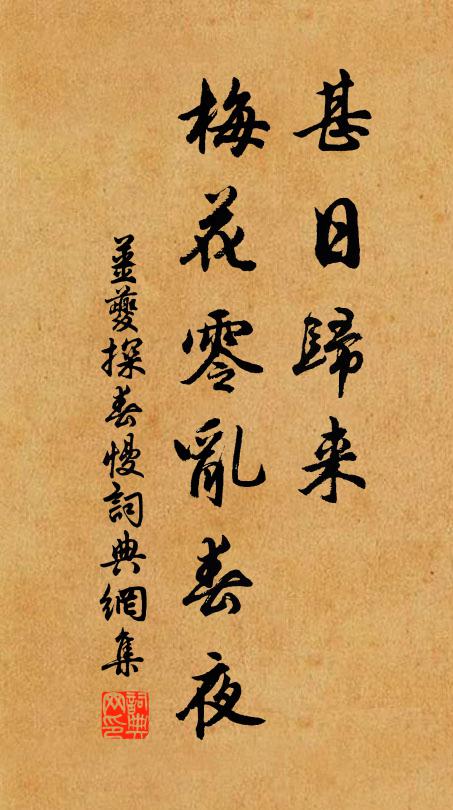 甚日歸来
梅花零亂春夜
姜夔探春慢詞典網集
詞典网印